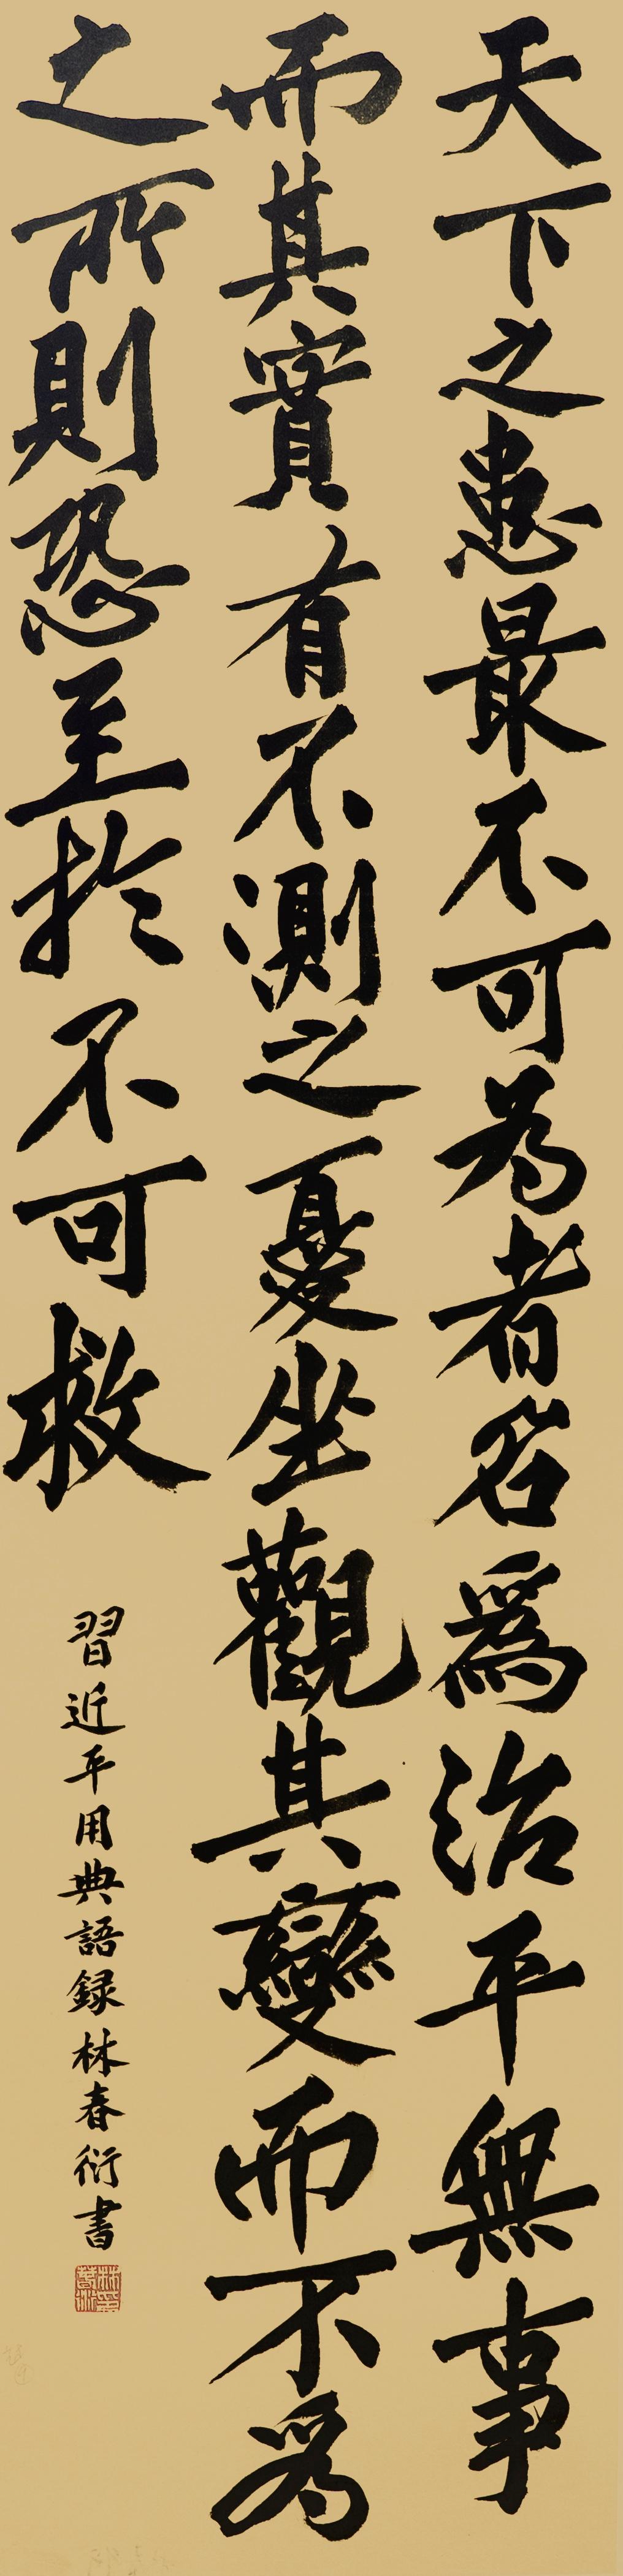 天下之患最不可为者名為治平無事
而其實有不測之憂坐觀其變而不為
之所則恐至於不可救
習近平用典語録林春衍書